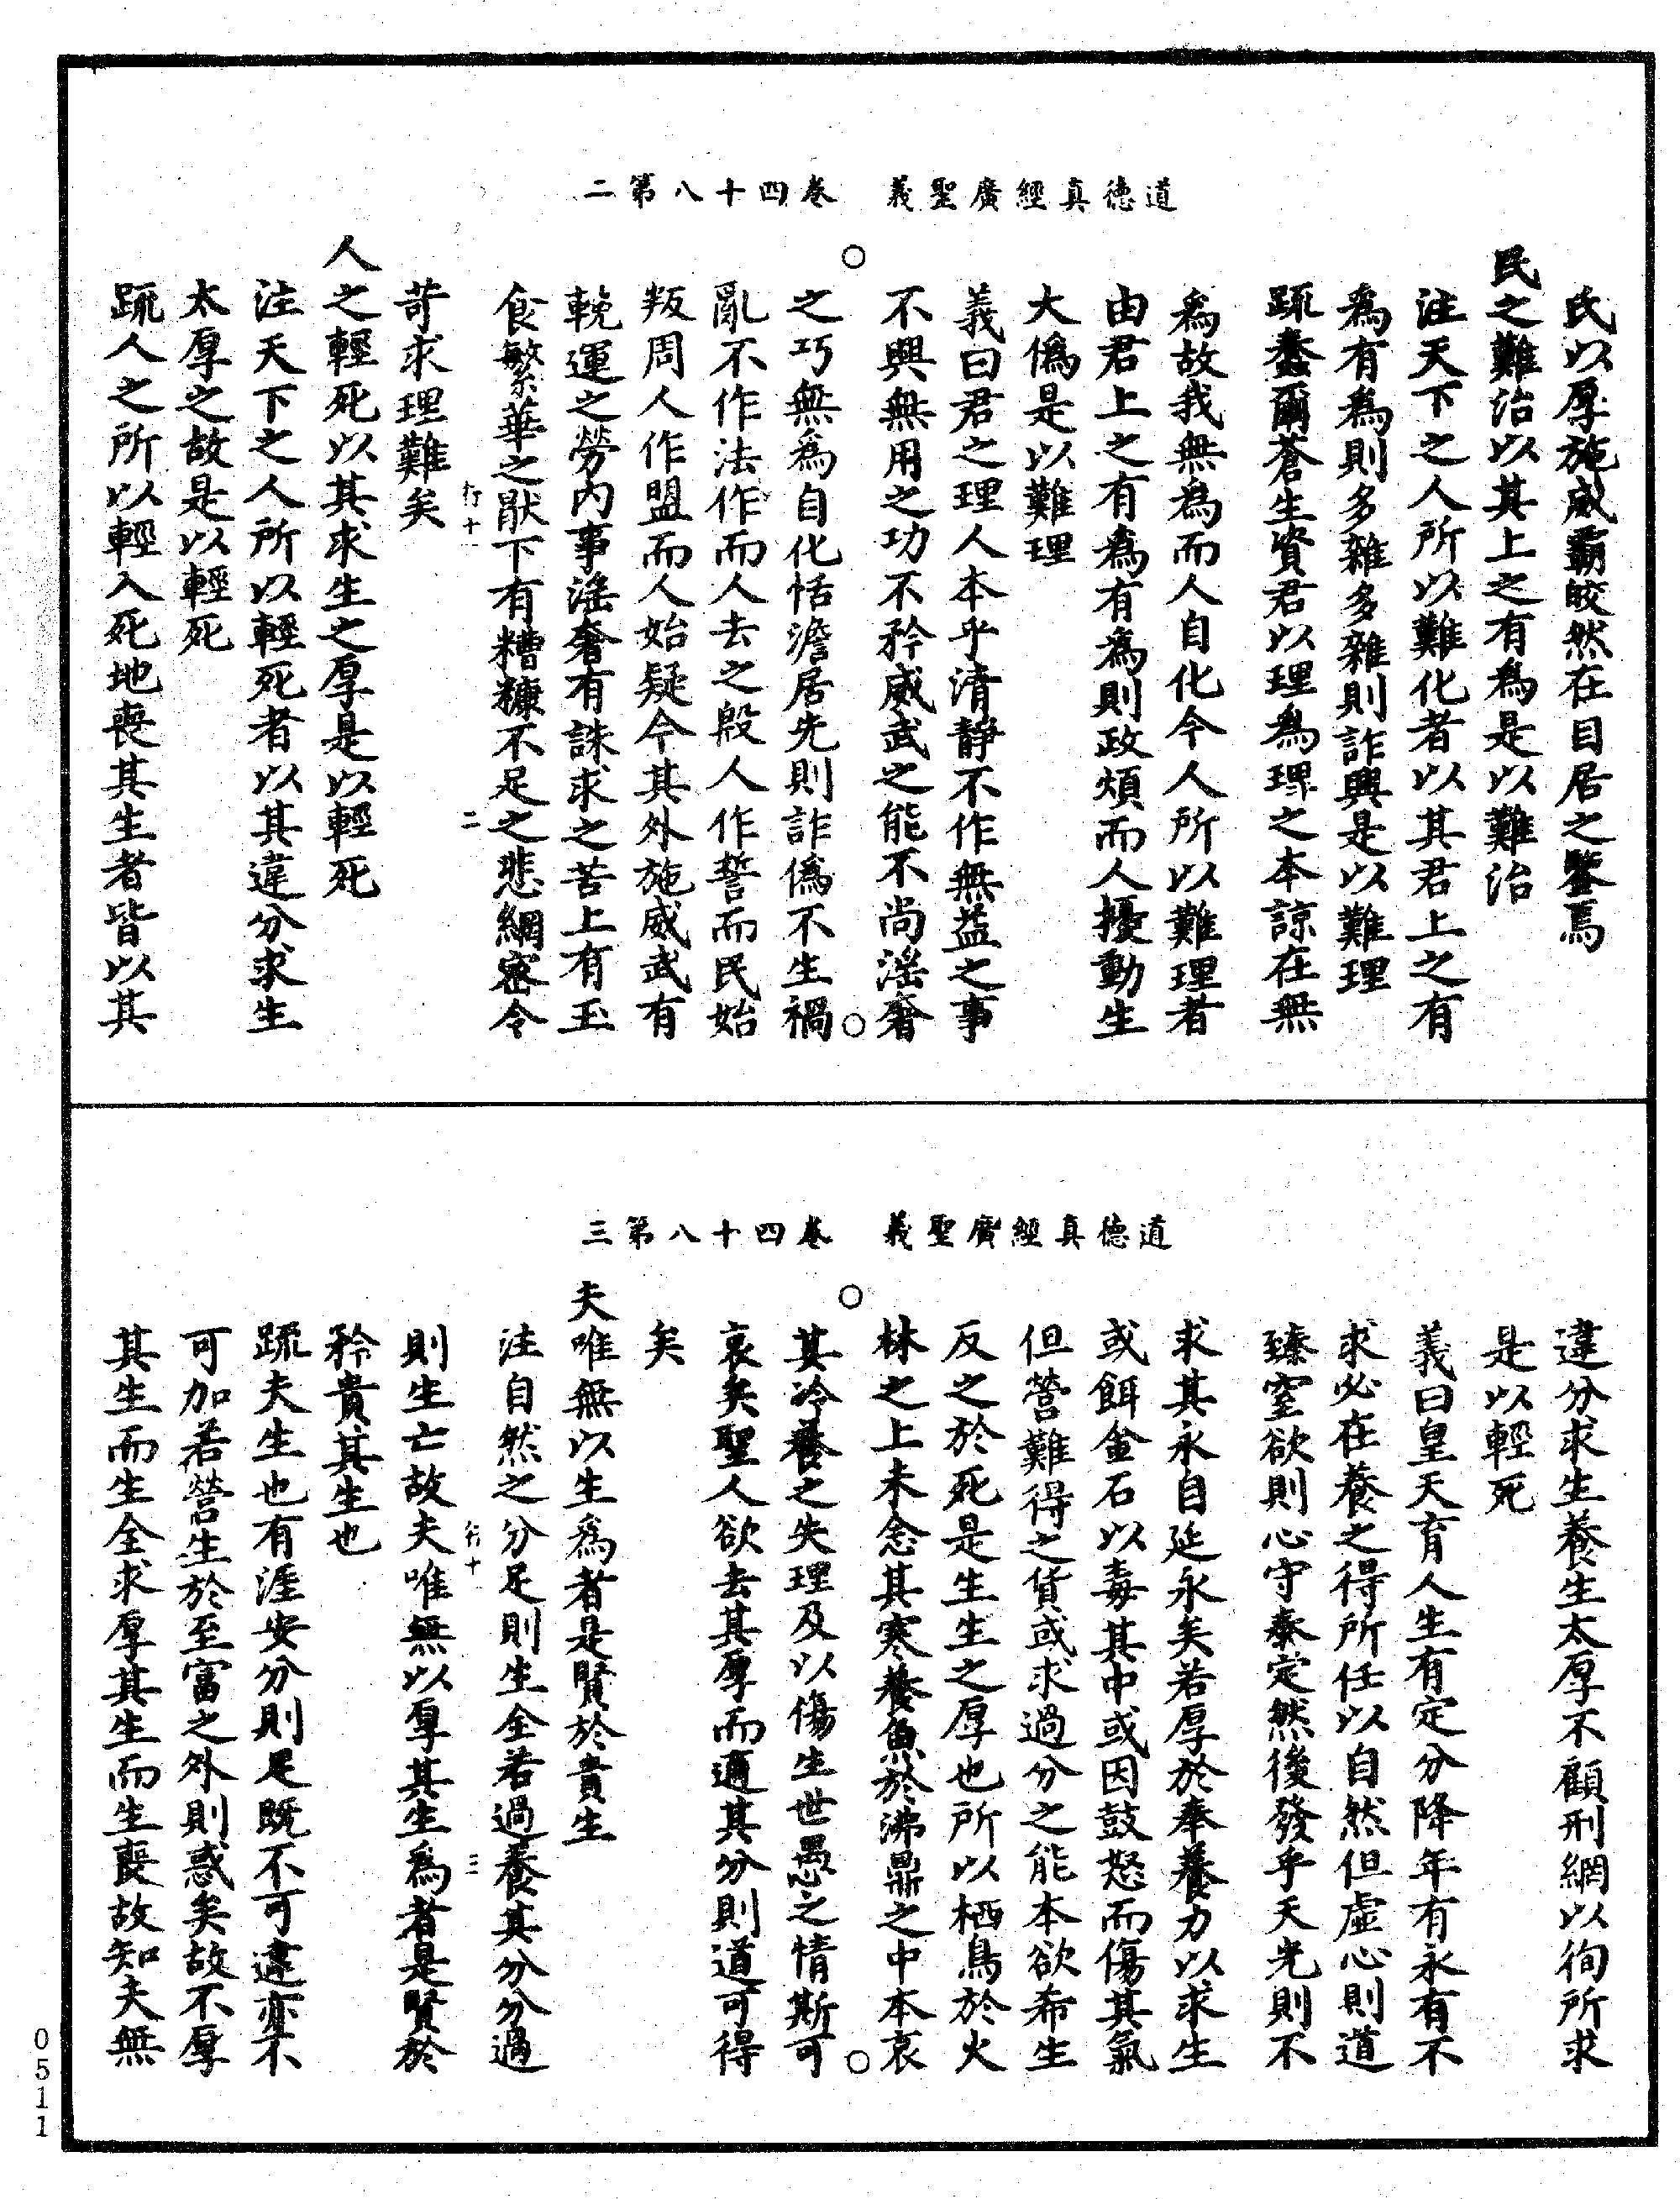 道德真經廣聖義　卷四十八第二
民以厚施威霸皎然在目居之鑒焉
民之難治以其上之有為是以難治
注天下之人所以難化者以其君上之有
為有為則多雜多雜則詐興是以難理
疏蠢爾蒼生資君以理為理之本諒在無
為故我無為而人自化今人所以難理者
由君上之有為有為則政煩而人擾動生
大偽是以難理
義曰君之理人本乎清靜不作無益之事
不興無用之功不矜威武之能不尚滛奢
之巧無為自化恬澹居先則詐偽不生禍
亂不作法作而人去之殷人作誓而民始
叛周人作盟而人始疑今其外施威武有
輓運之勞內事滛奢有誅求之苦上有玉
食繁華之猒下有糟糠不足之悲網密令
行十一　二
苛求理難矣
人之輕死以其求生之厚是以輕死
注天下之人所以輕死者以其違分求生
太厚之故是以輕死
疏人之所以輕入死地喪其生者皆以其
道德真經廣聖義　卷四十八第三
違分求生養生太厚不顧刑網以徇所求
是以輕死
義曰皇天育人生有定分降年有永有不
求必在養之得所任以自然但虛心則道
臻窒欲則心守泰定然後發乎天光則不
求其永自延永矣若厚於奉養力以求生
或餌金石以毒其中或因鼓怒而傷其氣
但營難得之貨或求過分之能本欲希生
反之於死是生生之厚也所以栖鳥於火
林之上未念其寒養魚於沸鼎之中本哀
其冷養之失理及以傷生世愚之情斯可
哀矣聖人欲去其厚而適其分則道可得
矣
夫唯無以生為者是賢於貴生
注自然之分足則生全若過養其分分過
行十　三
則生亡故夫唯無以厚其生為者是賢於
矜貴其生也
疏夫生也有涯安分則足既不可違亦不
可加若營生於至富之外則惑矣故不厚
其生而生全求厚其生而生喪故知夫無
0511